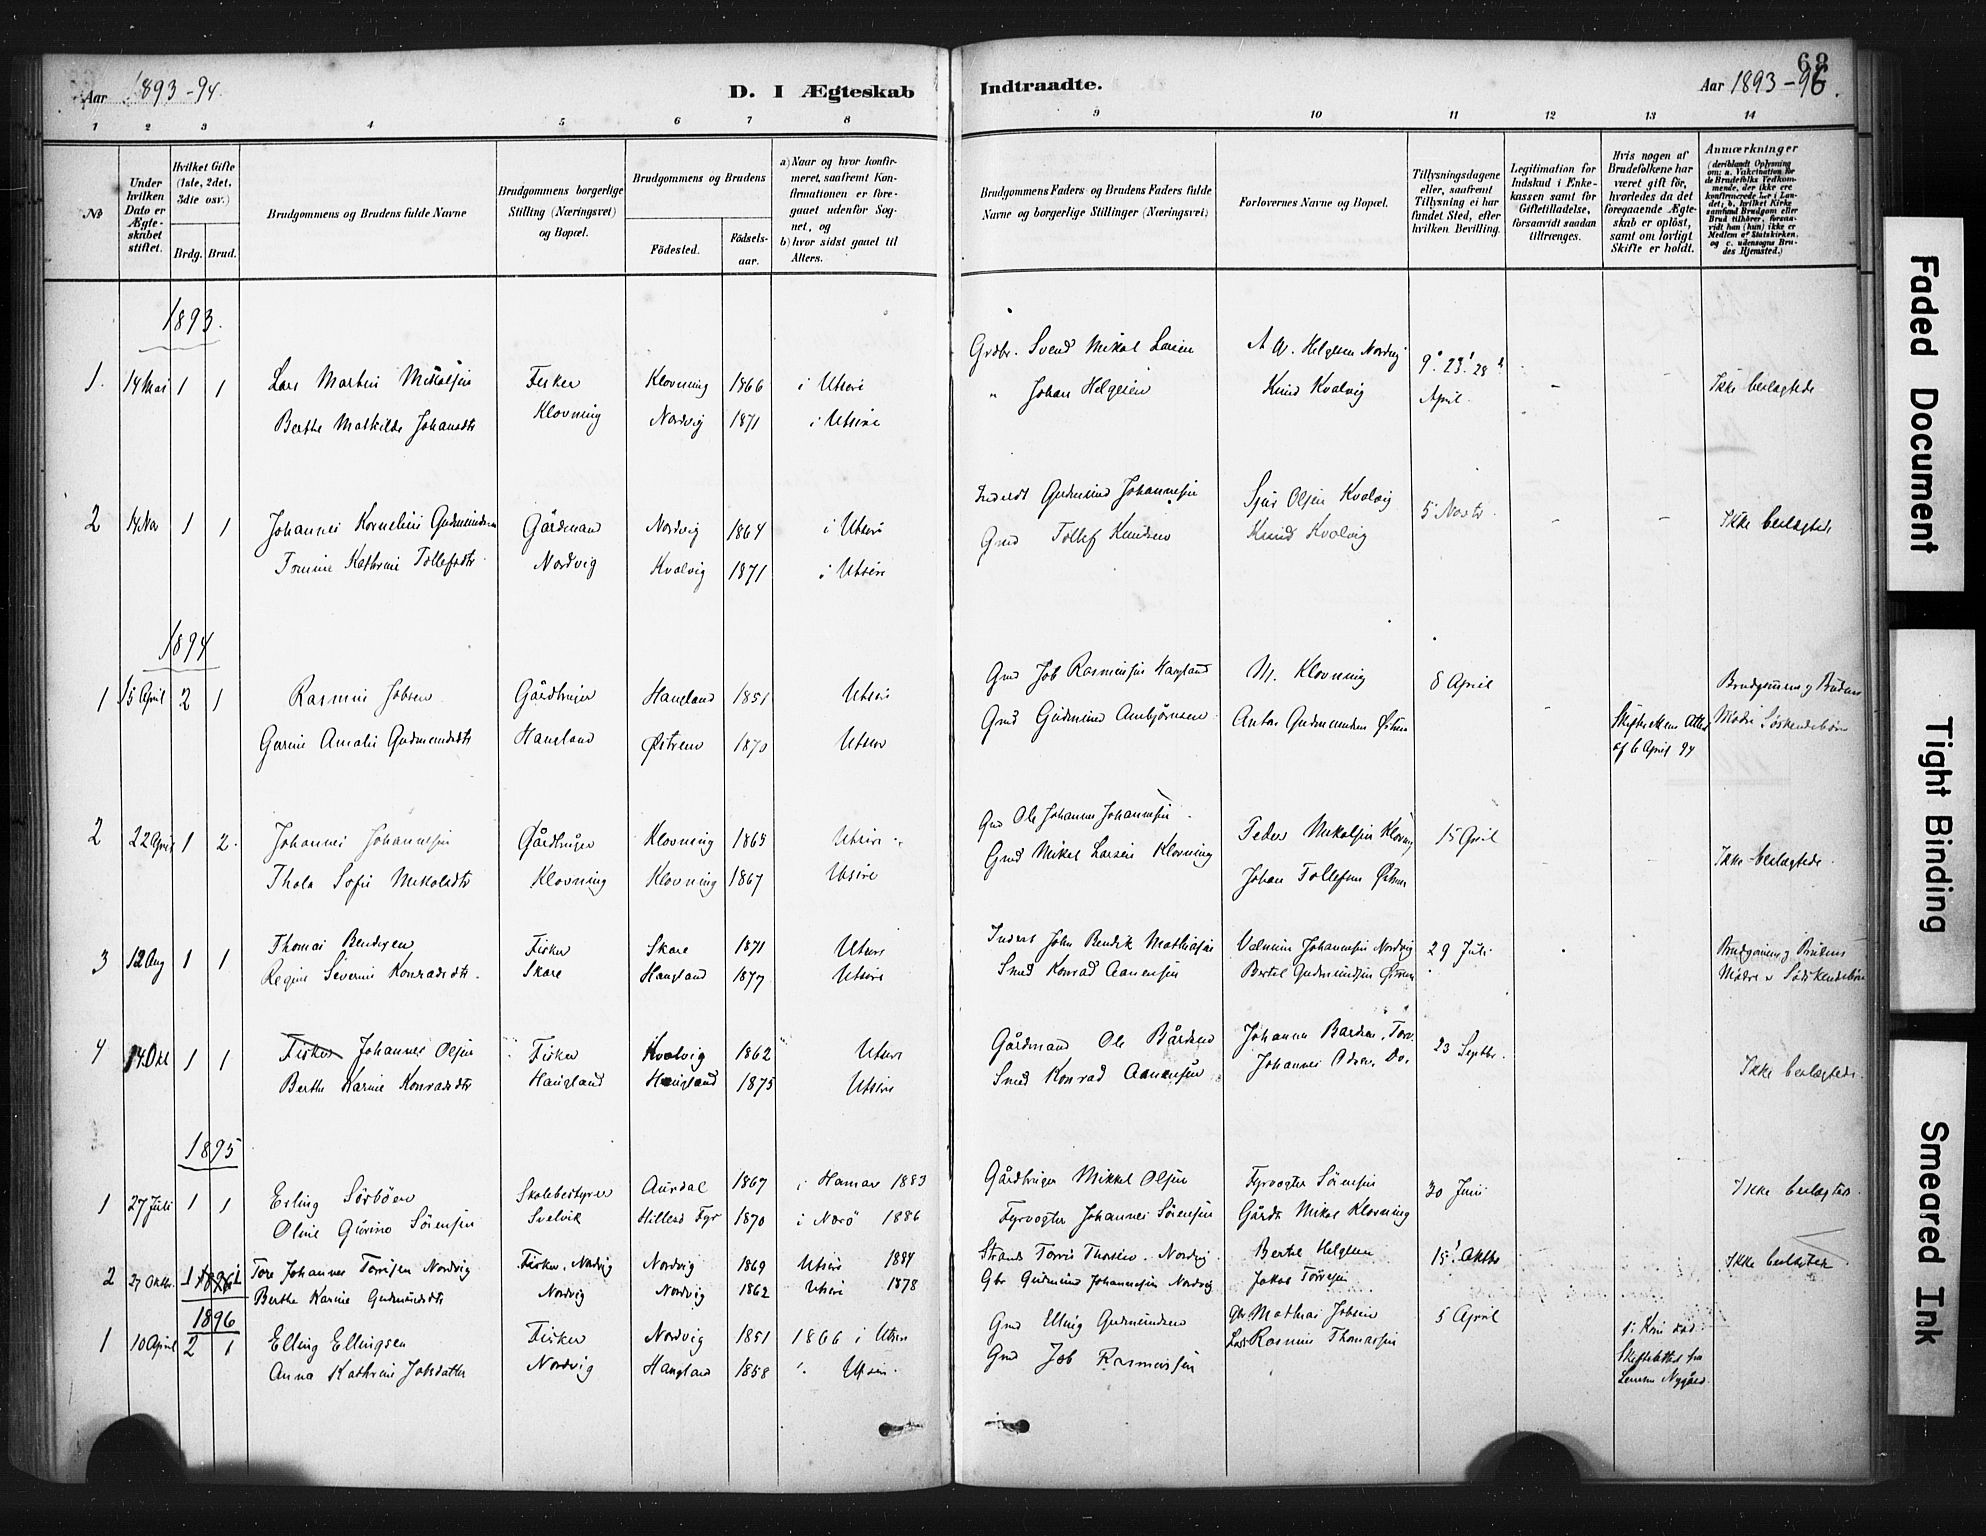 Aar 1893-94.
D. I Ægteskab
Indtraadte.
68
Aar 1893-96.
1 2 3 4 5 6 7 8 9 10 11 12 13 14
No
Under hvilken Dato er Ægteskabet stiftet.
Hvilket Gifte (1ste, 2det, 3die osv.)
Brdg. Brud.
Brudgommens og Brudens fulde Navne
Brudgommens borgerlige Stilling (Næringsvei) og Bopæl.
Brudgommens og Brudens
Fødested.
Fødsels-aar.
a) Naar og hvor konfirmeret, saafremt Konfirmationen er foregaaet udenfor Sognet, og
b) hvor sidst gaaet til Alters.
Brudgommens Faders og Brudens Faders fulde Navne og borgerlige Stillinger (Næringsvei)
Forlovernes Navne og Bopæl.
Tillysningsdagene eller, saafremt Tillysning ei har fundet Sted, efter hvilken Bevilling.
Legitimation for Indskud i Enkekassen samt for Giftetilladelse, forsaavidt saadan tiltrænges.
Hvis nogen af Brudefolkene har været gift før, hvorledes da det foregaaende Ægteskab er opløst, samt om lovligt Skifte er holdt.
Anmærkninger
(deriblandt Oplysning om: a. Vakcination for de Brudefolks Vedkommende, der ikke ere konfirmerede her i Landet; b. hvilket Kirkesamfund Brudgom eller Brud tilhører, forsaavidt han (hun) ikke er Medlem af Statskirken, og c. udensogns Brudes Hjemsted.)
1893.
1. 14 Mai 1 1 Lars Martin Mikalsen Fisker Klovning 1866 i Utsire Grdbr. Svend Mikal Larsen A W. Helgesen Nordvig 9. 23. 28. Ikke beslægtede
Berthe Mathilde Johansdtr Klovning Nordvig 1871 i Utsire " Johan Helgesen Knud Kvalvig April
2 14 Nov 1 1 Johannes Kornelius Gudmundsen Gårdmand Nordvig 1864 i Utsire Inderst Gudmund Johannesen Sjur Olsen Kvalvig 5 Novbr Ikke beslægtede
Kathrine Tollefsdtr Nordvig Kvalvig 1871 i Utsire Gmd Tollef Knudsen Knud Kvalvig
1894
1 15 April 2 1 Rasmus Jobsen Gårdbruger Haugland 1851 Utsire Gmd Job Rasmussen Haugland M. Klovning 8 April Brudgommens og Brudens
Gurine Amalie Gudmundsdtr Haugland Østrem 1870 Utsire Gmd Gudmund Asbjørnsen Anton Gudmundsen Østrem Attest Mødre Søskendebørn
af 6 April 94
2 22 April 1 2. Johannes Johannesen Gårdbruger Klovning 1865 Utsire Gmd Ole Johannes Johannesen Peder Mikalsen Klovning 15 April
Thala Sofie Mikalsdtr Klovning Klovning 1867 Utsire Gmd Mikal Larsen Klovning Johan Tollefsen Østrem Ikke beslægtede
3 12 Aug 1 1 Thomas Bendixen Fisker Skare 1871 Utsire Inderst John Bendik Mathiasen Johannesen Nordvig 29 Juli Brudgommens og Brudens
Regine Severine Konradsdtr. Skare Haugland 1877 Utsire Smed Konrad Aanensen Bertel Gudmundsen Østrem Mødre Søskendebørn
4 14 Okt 1 1 Fisker Johannes Olsen Fisker Kvalvig 1862 Utsire Gårdmand Ole Bårdsen Johannes Bardsen, 23 Septbr. Ikke beslægtede
Berthe Karine Konradsdtr Haugland Haugland 1875 Utsire Smed Konrad Aanensen Johannes Do.
1895
1 27 Juli 1 1 Erling Sörböen Skolebestyrer Aurdal 1867 i Hamar 1883 Gårdbruger Mikkel Olsen Fyrvogter Sörensen 30 Juni Ikke beslægtede.
Oline Gurine Sörensen Svelvik Fyr 1870 i 1886 Fyrvogter Johannes Sörensen Gårdb Mikal Klovning
2 27 Oktbr. 1 1 Tore Johannes Torrisen Nordvig Fisker. Nordvig Nordvig 1869 Utsire 1884 Torris Thorsen. Nordvig Bertel Helgesen 15 Oktbr Ikke beslægtede
1896
Berthe Karine Gudmundsdtr Nordvig Nordvig 1862 Utsire 1878 Gbr Gudmund Johannesen Nordvig Jakob Torresen
1896
1 10 April 2 1 Elling Ellingsen Fisker Nordvig 1851 1866 i Utsire Gmd Elling Gudmundsen Gbr Mathias Jobsen 5 April 1. Kone död.
Anna Kathrine Jobsdatter Nordvig Haugland 1858 Utsire. Gmd Job Rasmussen Rasmus Thomassen Skifteattest fra
Nygård.
Faded Document
Tight Binding
Smeared Ink